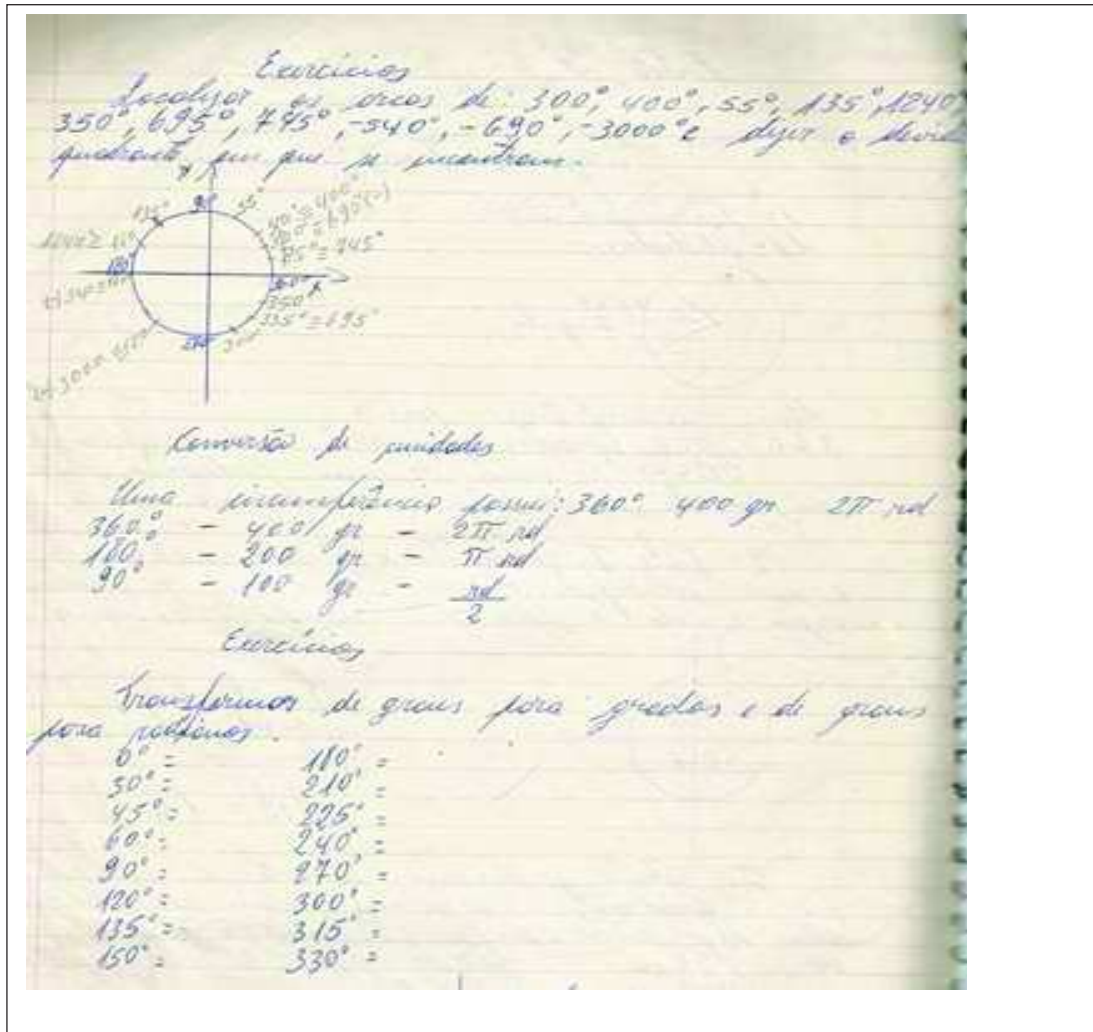 Exercícios
Localizar os arcos de: 300°, 400°, 55°, 135°, 1240
350°, 695°, 745°, -540°, -690°, -3000° e dizer o devido
quadrante em que se encontram.
y
135° 90° 55°
40° ≅ 400°
≅ 690° (-)
25° ≅ 745°
1240 ≅
180° 360° x
350°
335° ≅ 695°
270° 300
Conversão de unidades
Uma circunferência possui: 360° 400 gr 2π rd
360° - 400 gr - 2π rd
180° - 200 gr - π rd
90° - 100 gr - rd
2
Exercícios
Transformar de graus para grados e de graus
para radianos.
0° = 180° =
30° = 210° =
45° = 225° =
60° = 240° =
90° = 270° =
120° = 300° =
135° = 315° =
150° = 330° =